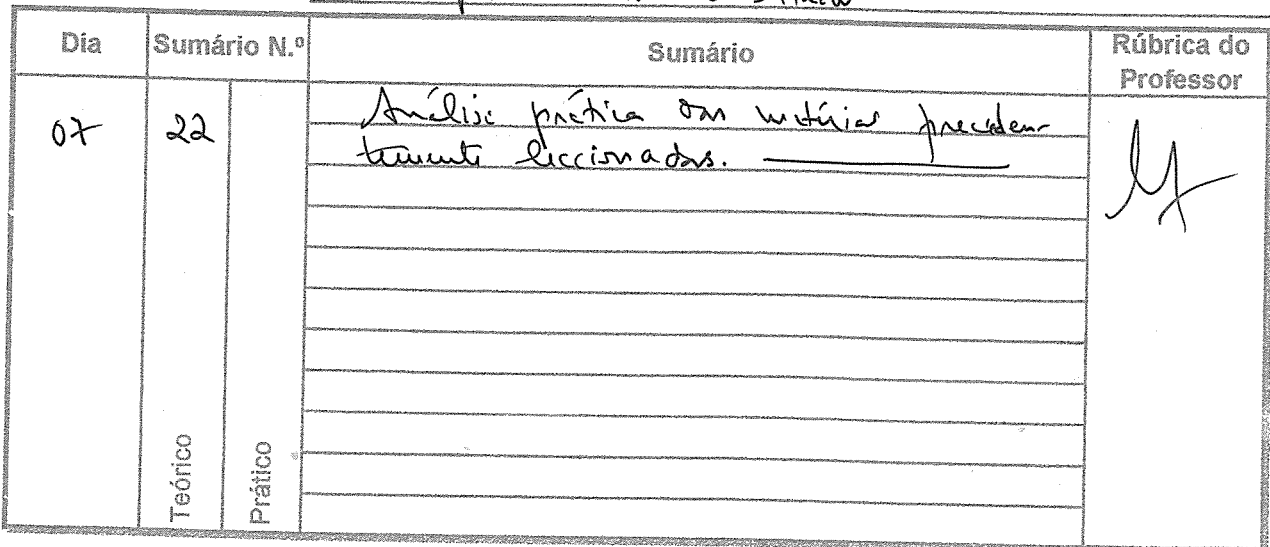 Dia Sumário N.º Sumário Rúbrica do Professor
07 22 Análise prática das matérias preceden-
temente leccionadas.
Teórico
Prático